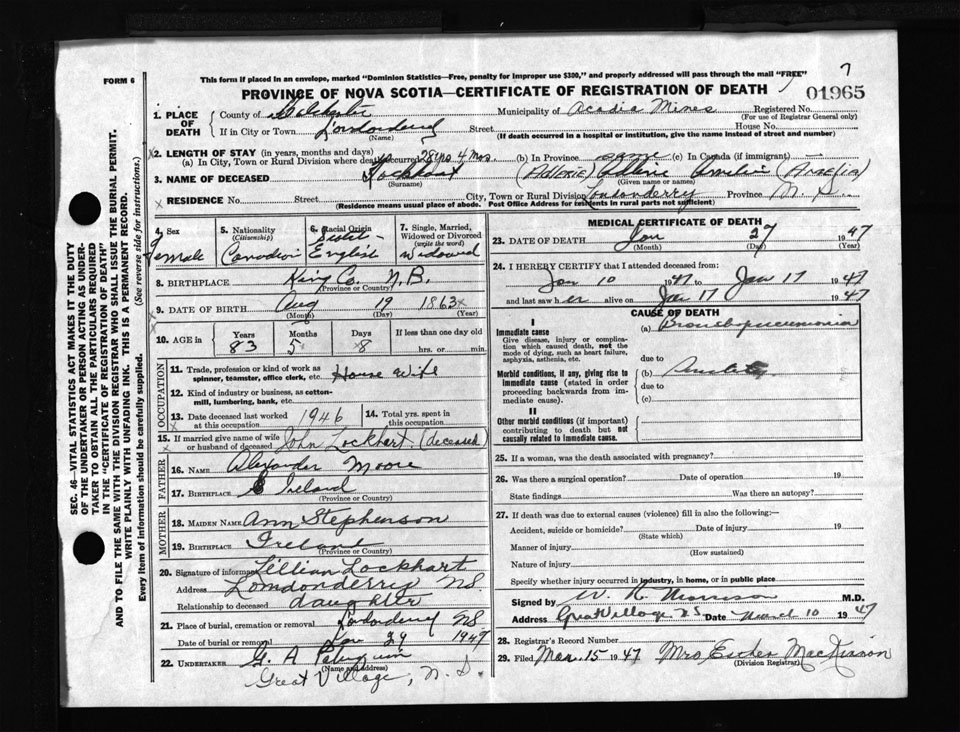 7
FORM 6
This form if placed in an envelope, marked "Dominion Statistics—Free, penalty for improper use $300," and properly addressed will pass through the mail "FREE"
PROVINCE OF NOVA SCOTIA—CERTIFICATE OF REGISTRATION OF DEATH
01965
1. PLACE OF DEATH
County of Colchester Municipality of Acadia Mines Registered No.
(For use of Registrar General only)
If in City or Town Londonderry Street House No.
(Name) (If death occurred in a hospital or institution, give the name instead of street and number)
2. LENGTH OF STAY (in years, months and days)
(a) In City, Town or Rural Division where death occurred 28 yrs 4 Mos. (b) In Province (c) In Canada (if immigrant)
3. NAME OF DECEASED Lockhart (ADLERIE) Amelia (AMELIA)
(Surname) (Given name or names)
RESIDENCE No. Street City, Town or Rural Division Londonderry Province N. S.
(Residence means usual place of abode. Post Office Address for residents in rural parts not sufficient)
4. Sex Female
5. Nationality (Citizenship) Canadian
6. Racial Origin English
7. Single, Married, Widowed or Divorced (write the word) Widowed
8. BIRTHPLACE King Co. N.B.
(Province or Country)
9. DATE OF BIRTH Aug 19 1863
(Month) (Day) (Year)
10. AGE in Years Months Days If less than one day old
83 5 8 hrs. or min.
OCCUPATION
11. Trade, profession or kind of work as spinner, teamster, office clerk, etc. House Wife
12. Kind of industry or business, as cotton-mill, lumbering, bank, etc.
13. Date deceased last worked at this occupation 1946 14. Total yrs. spent in this occupation
15. If married give name of wife or husband of deceased John Lockhart (deceased)
FATHER
16. NAME Alexander Moore
17. BIRTHPLACE Ireland
(Province or Country)
MOTHER
18. MAIDEN NAME Ann Stephenson
19. BIRTHPLACE Ireland
(Province or Country)
20. Signature of informant Lillian Lockhart
Address Lomdonderry NS.
Relationship to deceased daughter
21. Place of burial, cremation or removal Londonderry NS
Date of burial or removal Jan 29 1947
22. UNDERTAKER G. A
(Name and address)
Great Village, N. S.
MEDICAL CERTIFICATE OF DEATH
23. DATE OF DEATH Jan 27 1947
(Month) (Day) (Year)
24. I HEREBY CERTIFY that I attended deceased from:
Jan 10 1947 to Jan 17 1947
and last saw her alive on Jan 17 1947
CAUSE OF DEATH
I
Immediate cause (a) Bronchopneumonia
Give disease, injury or complication which caused death, not the mode of dying, such as heart failure, asphyxia, asthenia, etc.
due to
Morbid conditions, if any, giving rise to immediate cause (stated in order proceeding backwards from immediate cause).
(b)
due to
(c)
II
Other morbid conditions (if important) contributing to death but not causally related to immediate cause.
25. If a woman, was the death associated with pregnancy?
26. Was there a surgical operation? Date of operation 19
State findings Was there an autopsy?
27. If death was due to external causes (violence) fill in also the following:—
Accident, suicide or homicide? Date of injury 19
(State which)
Manner of injury
(How sustained)
Nature of injury
Specify whether injury occurred in industry, in home, or in public place
Signed by W. R. Morrison M.D.
Address Great Village N.S Date March 10 1947
28. Registrar's Record Number
29. Filed Mar. 15 1947 Mrs Esther MacKinnon
(Division Registrar)
SEC. 46—VITAL STATISTICS ACT MAKES IT THE DUTY
OF THE UNDERTAKER OR PERSON ACTING AS UNDERTAKER
TO OBTAIN ALL THE PARTICULARS REQUIRED
IN THE "CERTIFICATE OF REGISTRATION OF DEATH"
AND TO FILE THE SAME WITH THE DIVISION REGISTRAR WHO SHALL ISSUE THE BURIAL PERMIT.
WRITE PLAINLY WITH UNFADING INK. THIS IS A PERMANENT RECORD.
Every item of information should be carefully supplied. (See reverse side for instructions.)